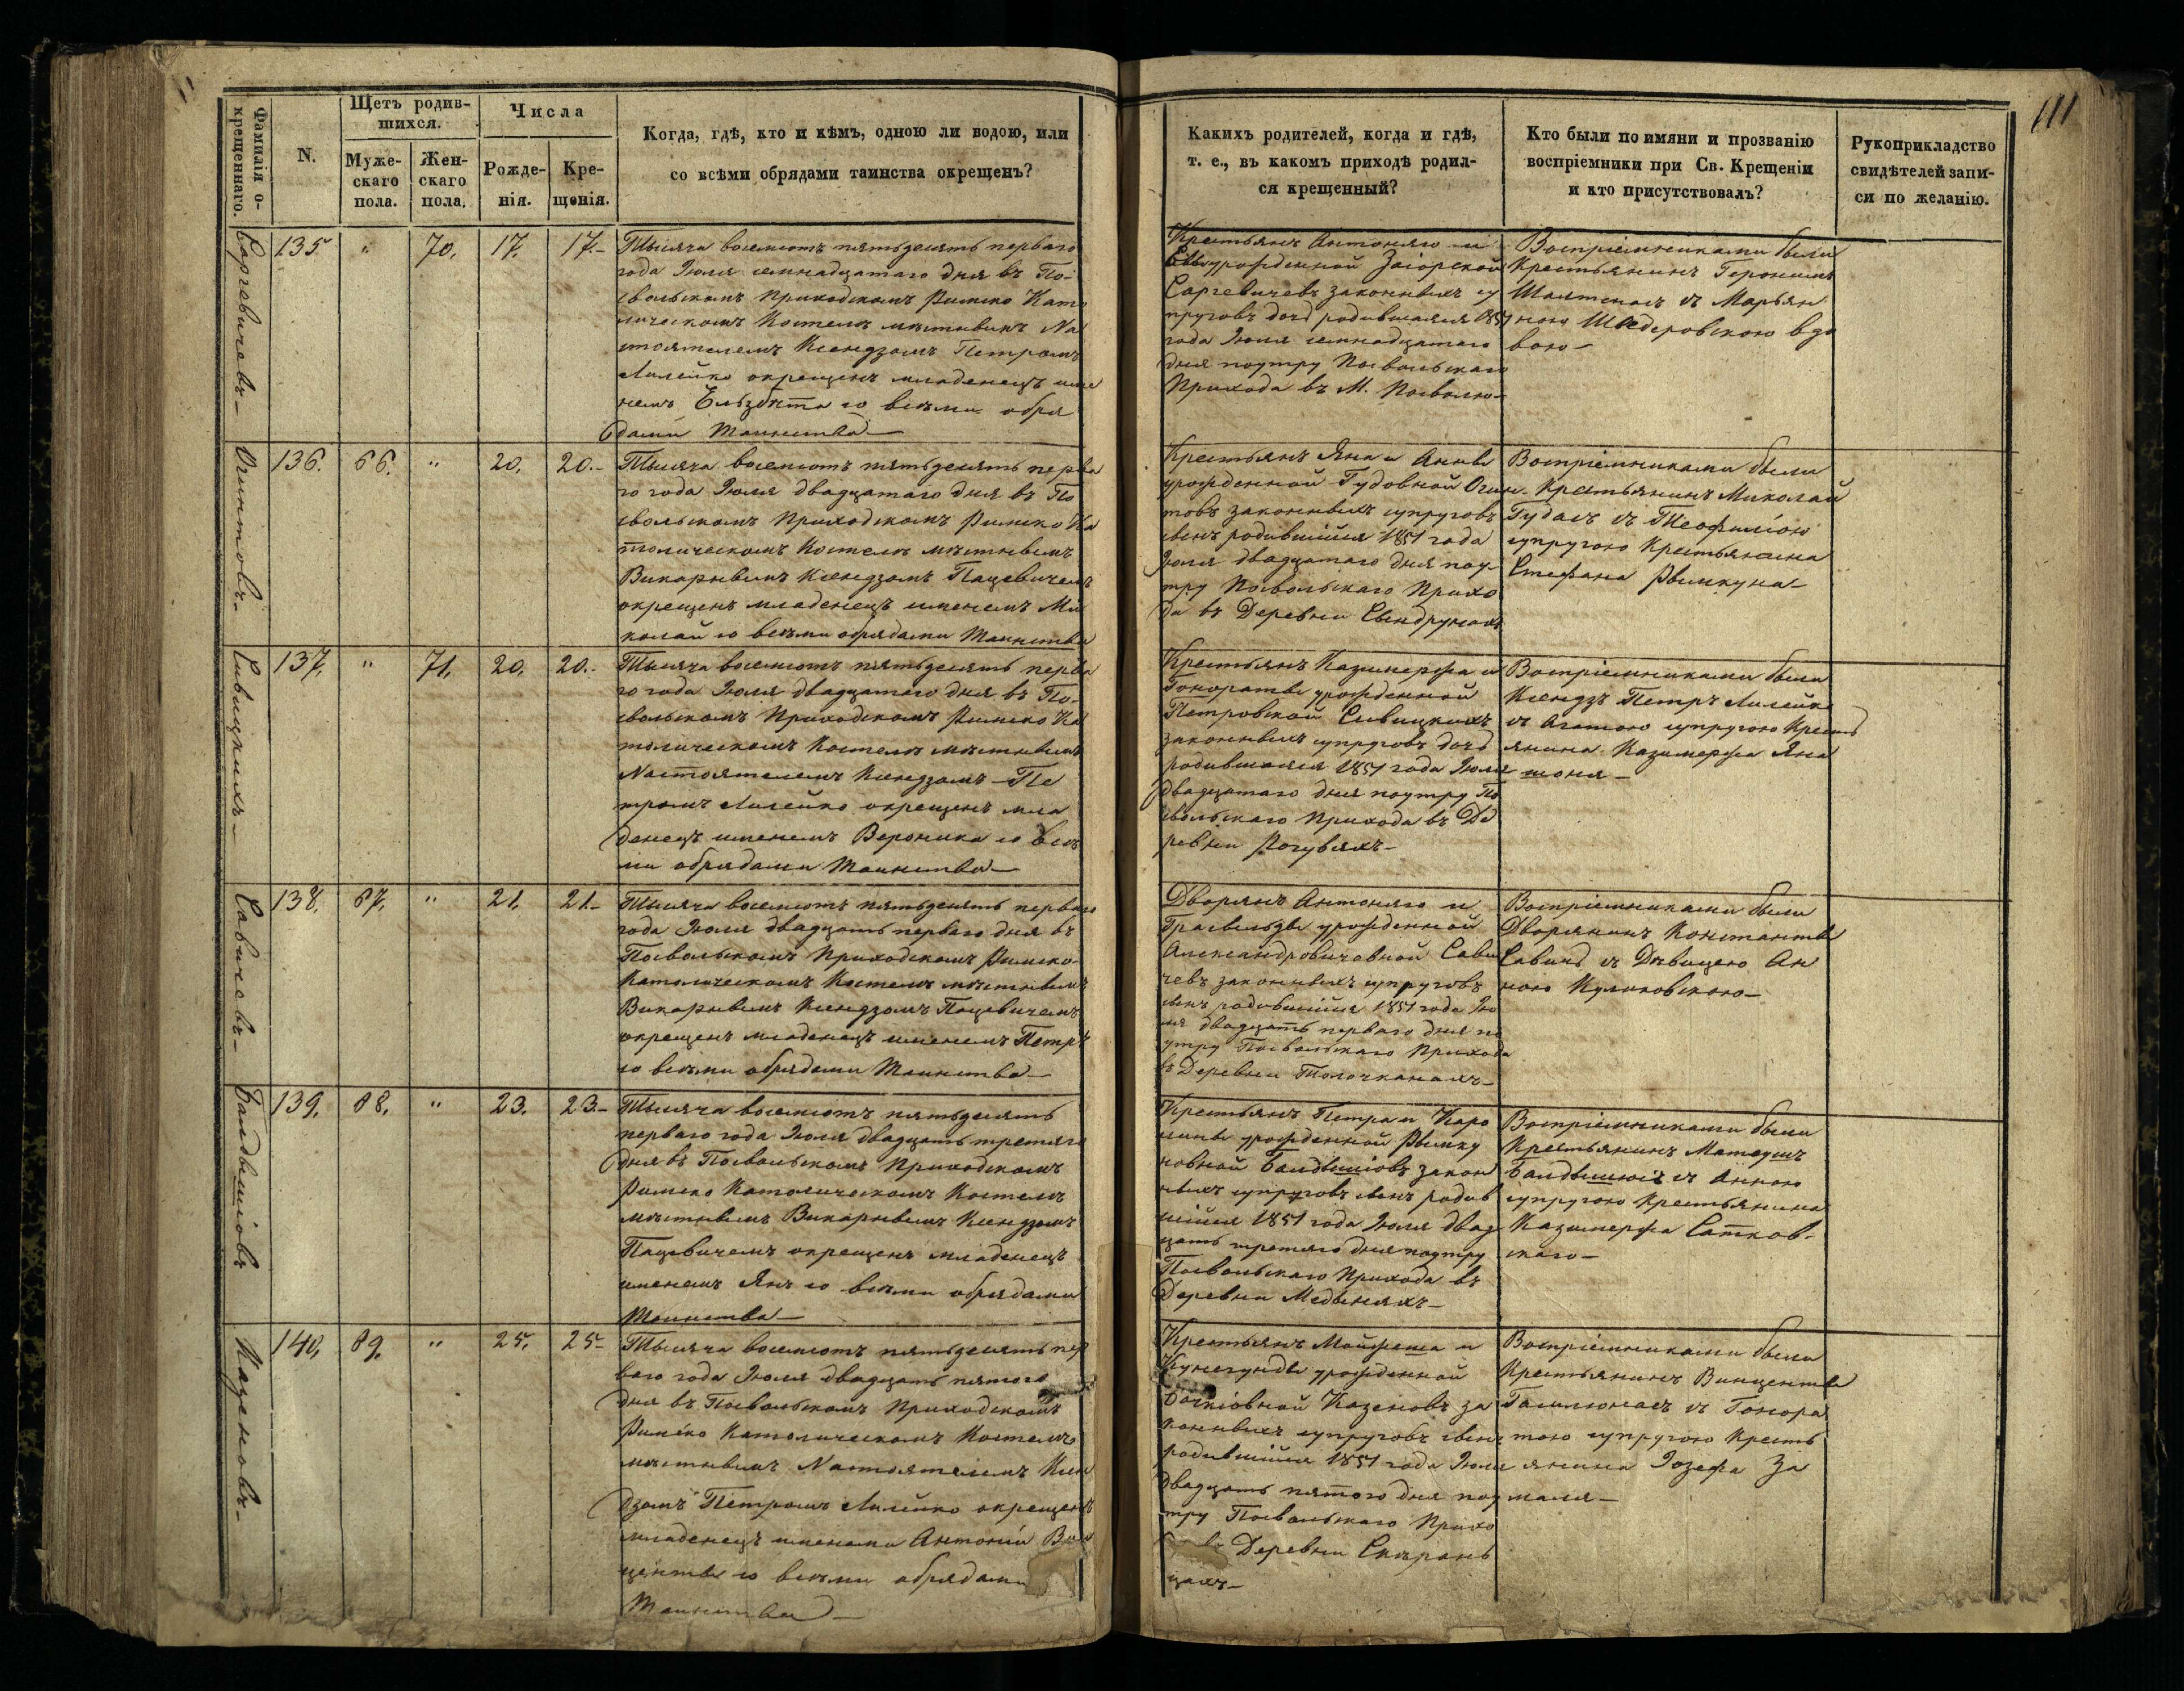 111
Фамилія о-
крещеннаго.
N.
Щетъ родив-
шихся.
Муже-
скаго
пола.
Жен-
скаго
пола.
Числа
Рожде-
нія.
Кре-
щенія.
Когда, гдѣ, кто и кѣмъ, одною ли водою, или
со всѣми обрядами таинства окрещенъ?
Какихъ родителей, когда и гдѣ,
т. е., въ какомъ приходѣ родил-
ся крещенный?
Кто были по имяни и прозванію
воспріемники при Св. Крещеніи
и кто присутствовалъ?
Рукоприкладство
свидѣтелей запи-
си по желанію.
Саргевичевъ-
135.
"
70.
17.
17.-
Тысяча восемсотъ пятьдесятъ перваго
года Іюля семнадцатаго дня въ По-
свольскомъ Приходскомъ Римско Като
лическомъ Костелѣ мѣстнымъ На
стоятелемъ Ксендзомъ Петромъ
Лилейко окрещенъ младенецъ име
немъ Ельзбѣта со всѣми обря
дами Таинства-
Крестьянъ Антоняго и
урожденной Загорской
Саргевичевъ законныхъ су
пруговъ дочь родившаяся 1851
года Іюля семнадцатаго
дня поутру Посвольскаго
Прихода въ М. Посволю-
Воспріемниками были
Крестьянинъ Геронимъ
съ Марьян
ною Шведеровскою вдо
вою-
Огинтовъ-
136.
66.
"
20.
20.-
Тысяча восемсотъ пятьдесятъ перва
го года Іюля двадцатаго дня въ По
свольскомъ Приходскомъ Римско Ка
толическомъ Костелѣ мѣстнымъ
Викарнымъ Ксендзомъ Пацевичемъ
окрещенъ младенецъ именемъ Ми
колай со всѣми обрядами Таинства
Крестьянъ Яна и Анны
урожденной Гудовной Огин-
товъ законныхъ супруговъ
сынъ родившійся 1851 года
Іюля двадцатаго дня поу-
тру Посвольскаго Прихо
да въ Деревни
Воспріемниками были
Крестьянинъ Миколай
Гудасъ съ Теофилію
супругою Крестьянина
Стефана Рымкуна-
Сивицкихъ-
137.
"
71.
20.
20.-
Тысяча восемсотъ пятьдесятъ перва
го года Іюля двадцатаго дня въ По-
свольскомъ Приходскомъ Римско Ка
толическомъ Костелѣ мѣстнымъ
Настоятелемъ Ксендзомъ Пе
тромъ Лилейко окрещенъ мла
денецъ именемъ Вероника со всѣ
ми обрядами Таинства-
Крестьянъ Казимержа и
Гонораты урожденной
Петровской Сивицкихъ
законныхъ супруговъ дочь
родившаяся 1851 года Іюля
двадцатаго дня поутру По
свольскаго Прихода въ Де
ревни Рогувяхъ-
Воспріемниками были
Ксендзъ Петръ Лилейко
съ Агатою супругою Кресть
янина Казимержа Яна
шоня-
Савичевъ-
138.
67.
"
21.
21.-
Тысяча восемсотъ пятьдесятъ перваго
года Іюля двадцать перваго дня въ
Посвольскомъ Приходскомъ Римско-
Католическомъ Костелѣ мѣстнымъ
Викарнымъ Ксендзомъ Пацевичемъ
окрещенъ младенецъ именемъ Петръ
со всѣми обрядами Таинства-
Дворянъ Антоняго и
урожденной
Александровичовной Сави
чевъ законныхъ супруговъ
сынъ родившійся 1851 года Ію
ля двадцать перваго дня по
утру Посвольскаго Прихода
въ Деревни Толочканахъ-
Воспріемниками были
Дворянинъ Константы
Савичъ съ Дѣвицею Ан
ною Куликовскою-
139.
68.
"
23.
23.-
Тысяча восемсотъ пятьдесятъ
перваго года Іюля двадцать третяго
дня въ Посвольскомъ Приходскомъ
Римско Католическомъ Костелѣ
мѣстнымъ Викарнымъ Ксендзомъ
Пацевичемъ окрещенъ младенецъ
именемъ Янъ со всѣми обрядами
Таинства-
Крестьянъ Петра и Каро
лины урожденной Рымку
новной закон
ныхъ супруговъ сынъ родив
шійся 1851 года Іюля двад
цать третяго дня поутру
Посвольскаго Прихода въ
Деревни Медыняхъ-
Воспріемниками были
Крестьянинъ Матеушъ
съ Анною
супругою Крестьянина
Казимержа Сатков-
скаго-
Казеновъ-
140.
69.
"
25.
25-
Тысяча восемсотъ пятьдесятъ пер
ваго года Іюля двадцать пятого
дня въ Посвольскомъ Приходскомъ
Римско Католическомъ Костелѣ
мѣстнымъ Настоятелемъ Ксен
дзомъ Петромъ Лилейко окрещенъ
младенецъ именами Антоній Вин
центы со всѣми обрядами
Таинства-
Крестьянъ и
Кунегунды урожденной
Казеновъ за
конныхъ супруговъ сынъ
родившійся 1851 года Іюля
двадцать пятого дня поу
тру Посвольскаго Прихо
Деревни
цахъ-
Воспріемниками были
Крестьянинъ Винценты
съ Гонора
тою супругою Кресть
янина Іозефа За
маля-